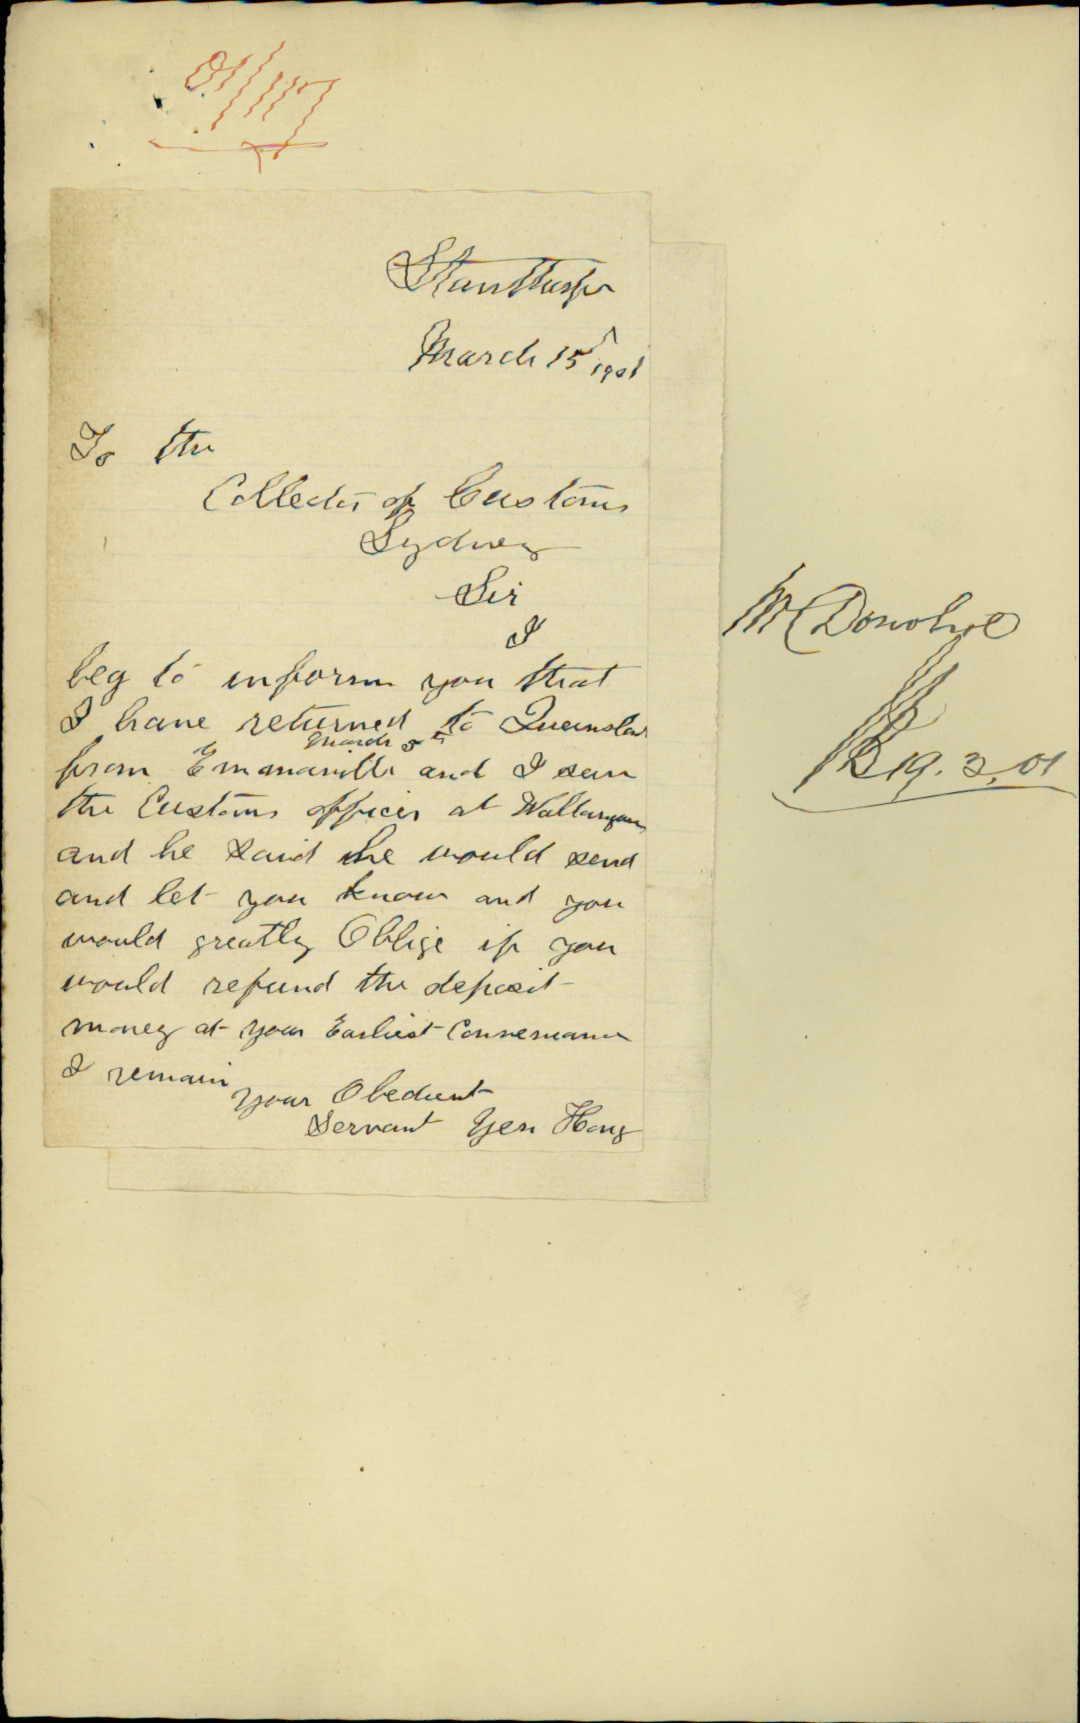 01/117
Stanthorpe
March 15 1901
To the
Collector of Customs
Sydney
Sir
I
beg to inform you that
I have returned to Queensland
March 5th
from Emmaville and I saw
the Customs officer at Wallangarra
and he said he would send
and let you know and you
would greatly Oblige if you
would refund the deposit
money at your Earliest Convenience
I remain
your Obedient
Servant Yen Hong
Mr Donohoe
19.3.01